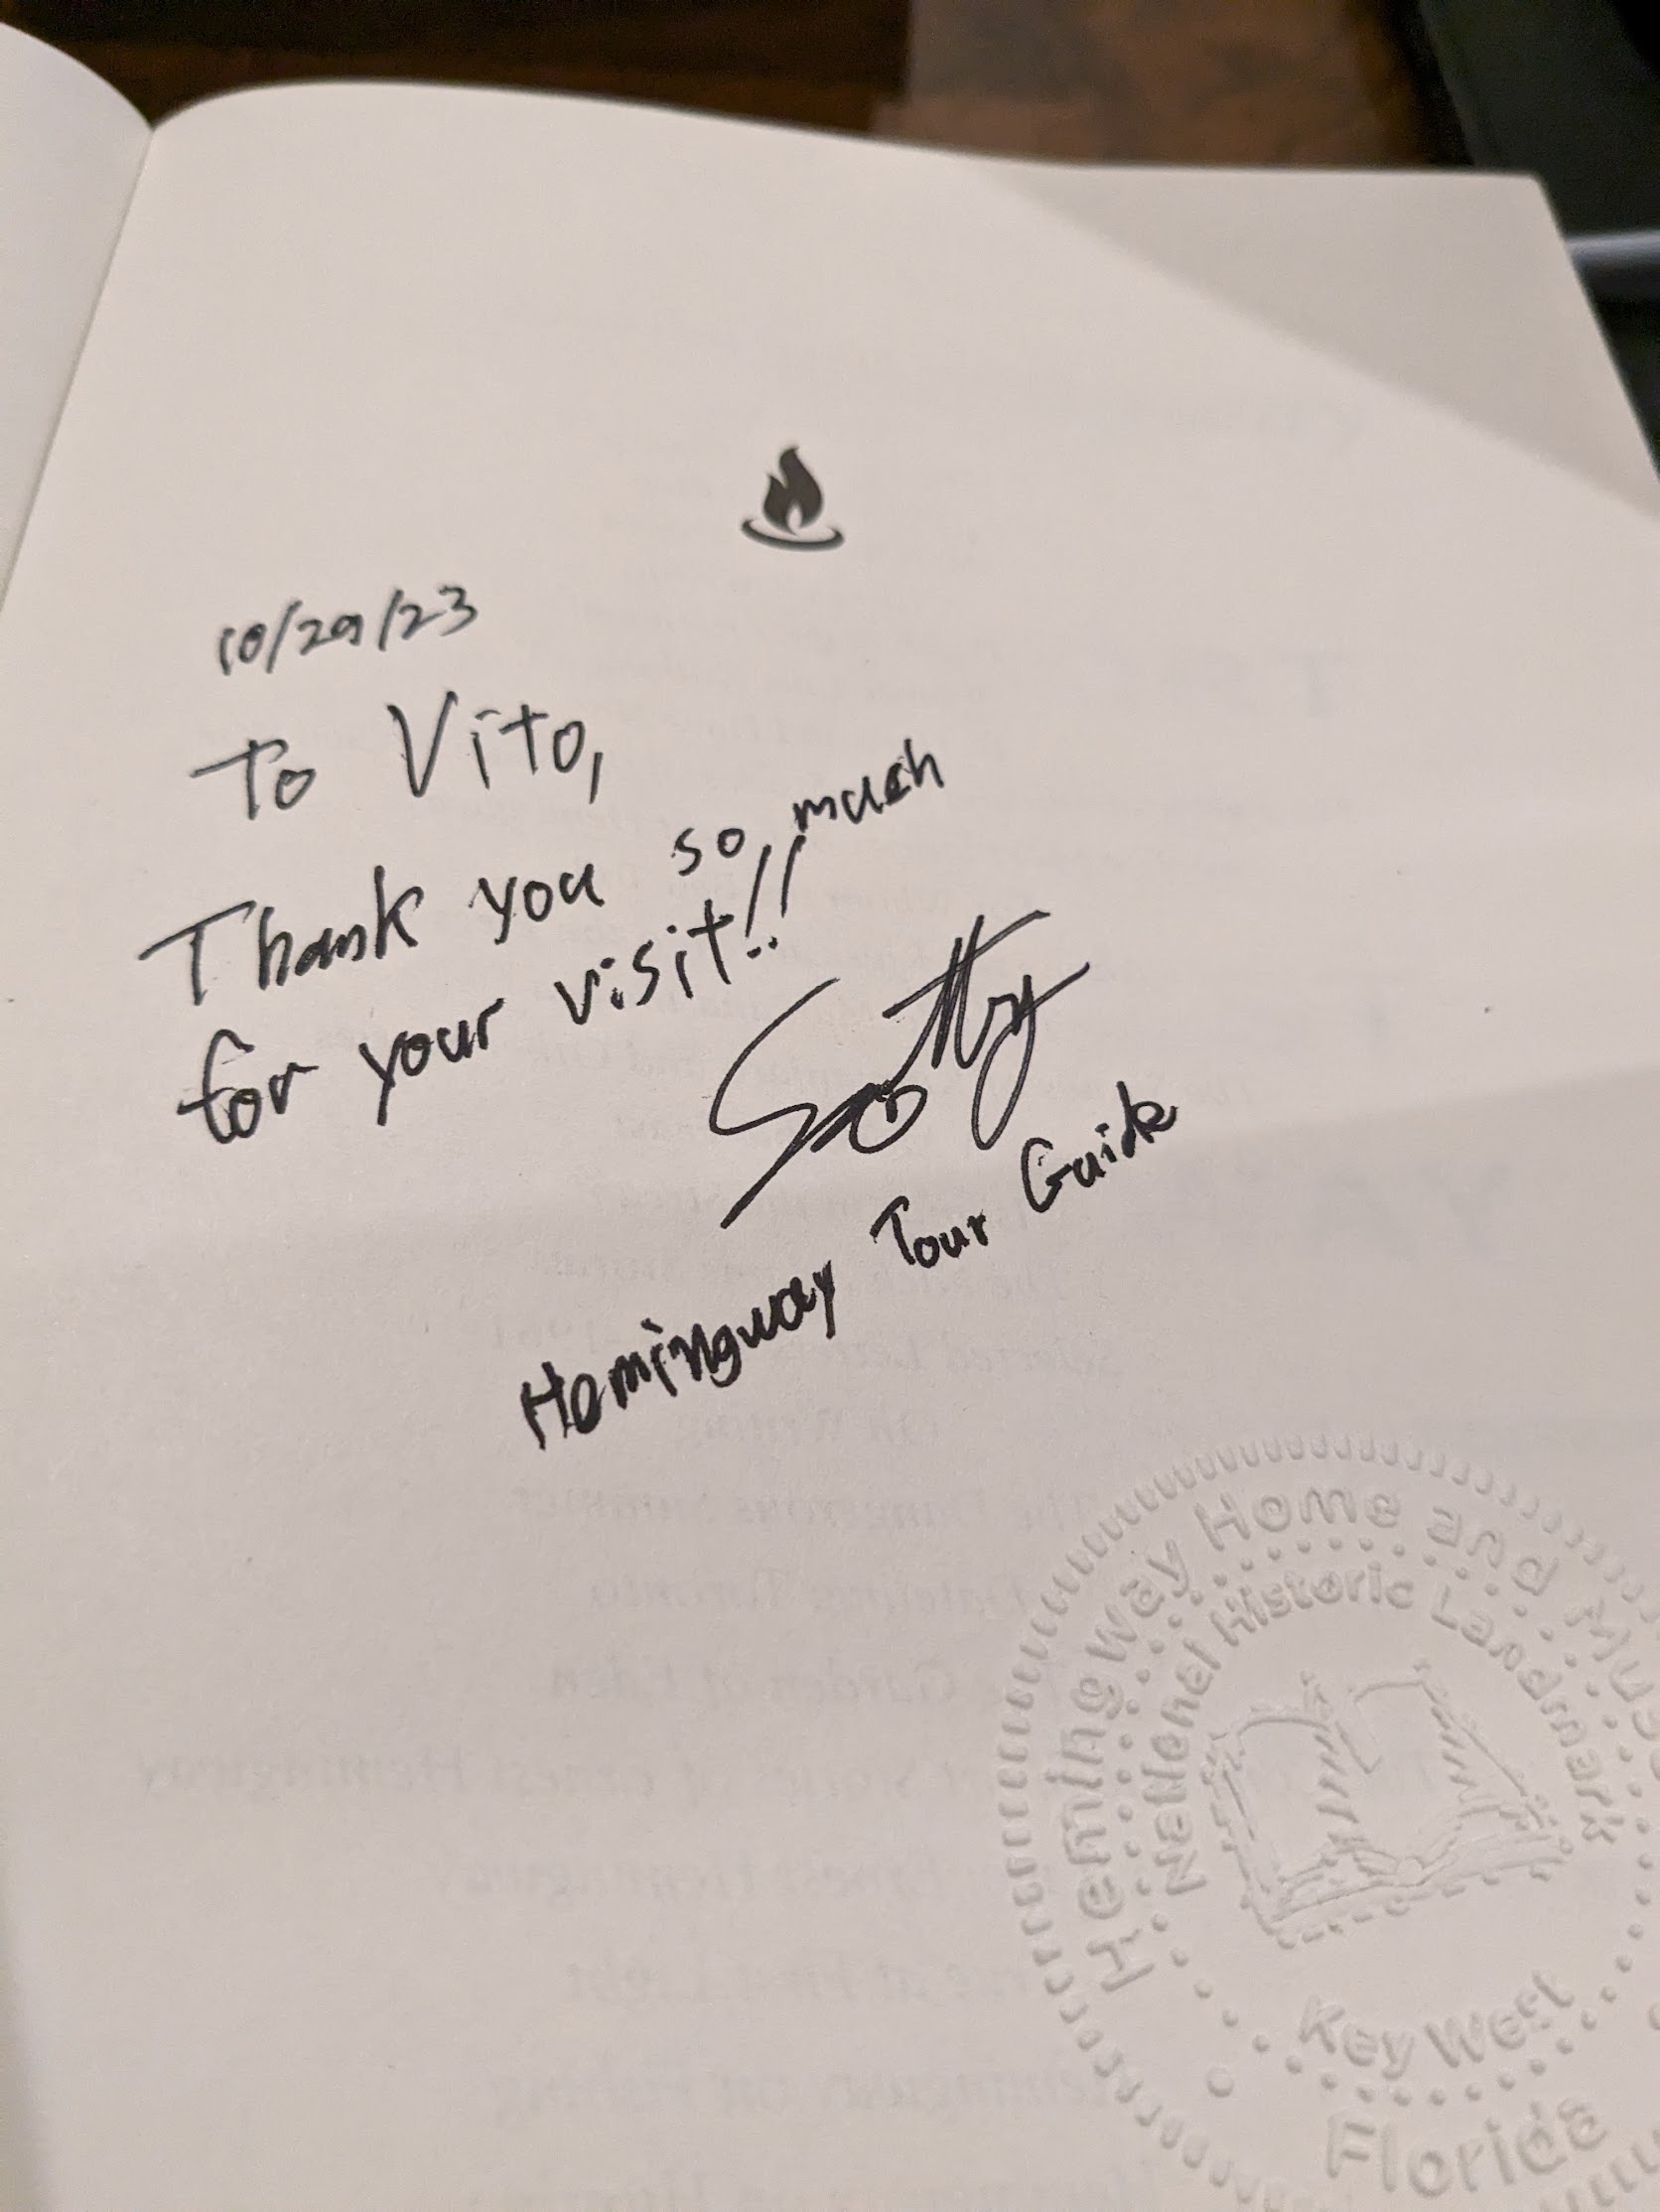 10/29/23
To Vito,
Thank you so much
for your visit!!
Scotty
Hemingway Tour Guide
Hemingway Home and Mus
National Historic Landmark
Key West
Florida